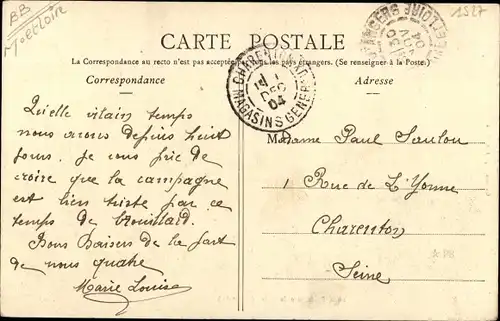 BB
M et Loire
1527
CARTE POSTALE
La Correspondance au recto n'est pas acceptée par tous les pays étrangers. (Se renseigner à la Poste.)
Correspondance
Adresse
ANGERS
30
NOV
04
MAGASINS GENERAUX
1
DEC
04
Quelle vilain temps
nous avons depuis huit
jours. Je vous prie de
croire que la campagne
est bien triste par ce
temps de brouillard.
Bons Baisers de la part
de nous quatre
Marie Louise
Madame Paul
1 Rue de L'Yonne
Charenton
Seine